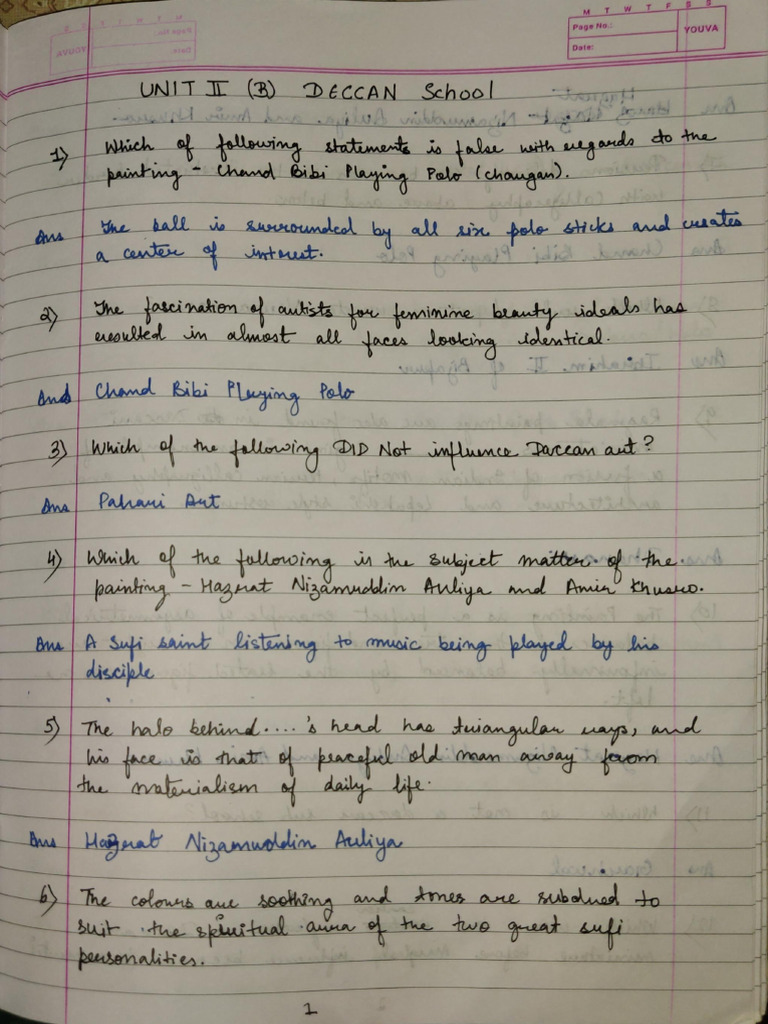 M T W T F S S
Page No.:
YOUVA
Date:
UNIT II (B) DECCAN School
1) Which of following statements is false with regards to the
painting - Chand Bibi Playing Polo (chaugan).
Ans The ball is surrounded by all six polo sticks and creates
a center of interest.
2) The fascination of artists for feminine beauty ideals has
resulted in almost all faces looking identical.
Ans Chand Bibi Playing Polo
3) Which of the following DID Not influence Daccan art?
Ans Pahari Art
4) Which of the following is the subject matter of the
painting - Hazrat Nizamuddin Auliya and Amir Khusro.
Ans A Sufi saint listening to music being played by his
disciple
5) The halo behind....'s head has triangular rays, and
his face is that of peaceful old man away from
the materialism of daily life.
Ans Hazrat Nizamuddin Auliya
6) The colours are soothing and tones are subdued to
suit the spiritual aura of the two great sufi
personalities.
1